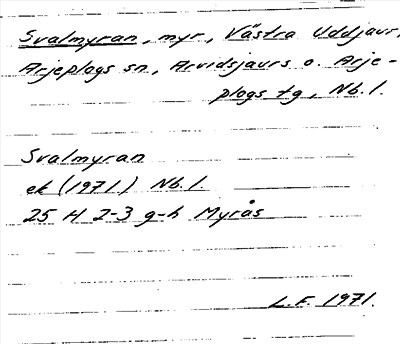 Svalmyran, myr, Västra Uddjaur,
Arjeplogs sn, Arvidsjaurs o. Arje-
plogs tg, Nb.l.
Svalmyran
ek (1971) Nb.l.
25 H 2-3 g-h Myrås
L.F. 1971.